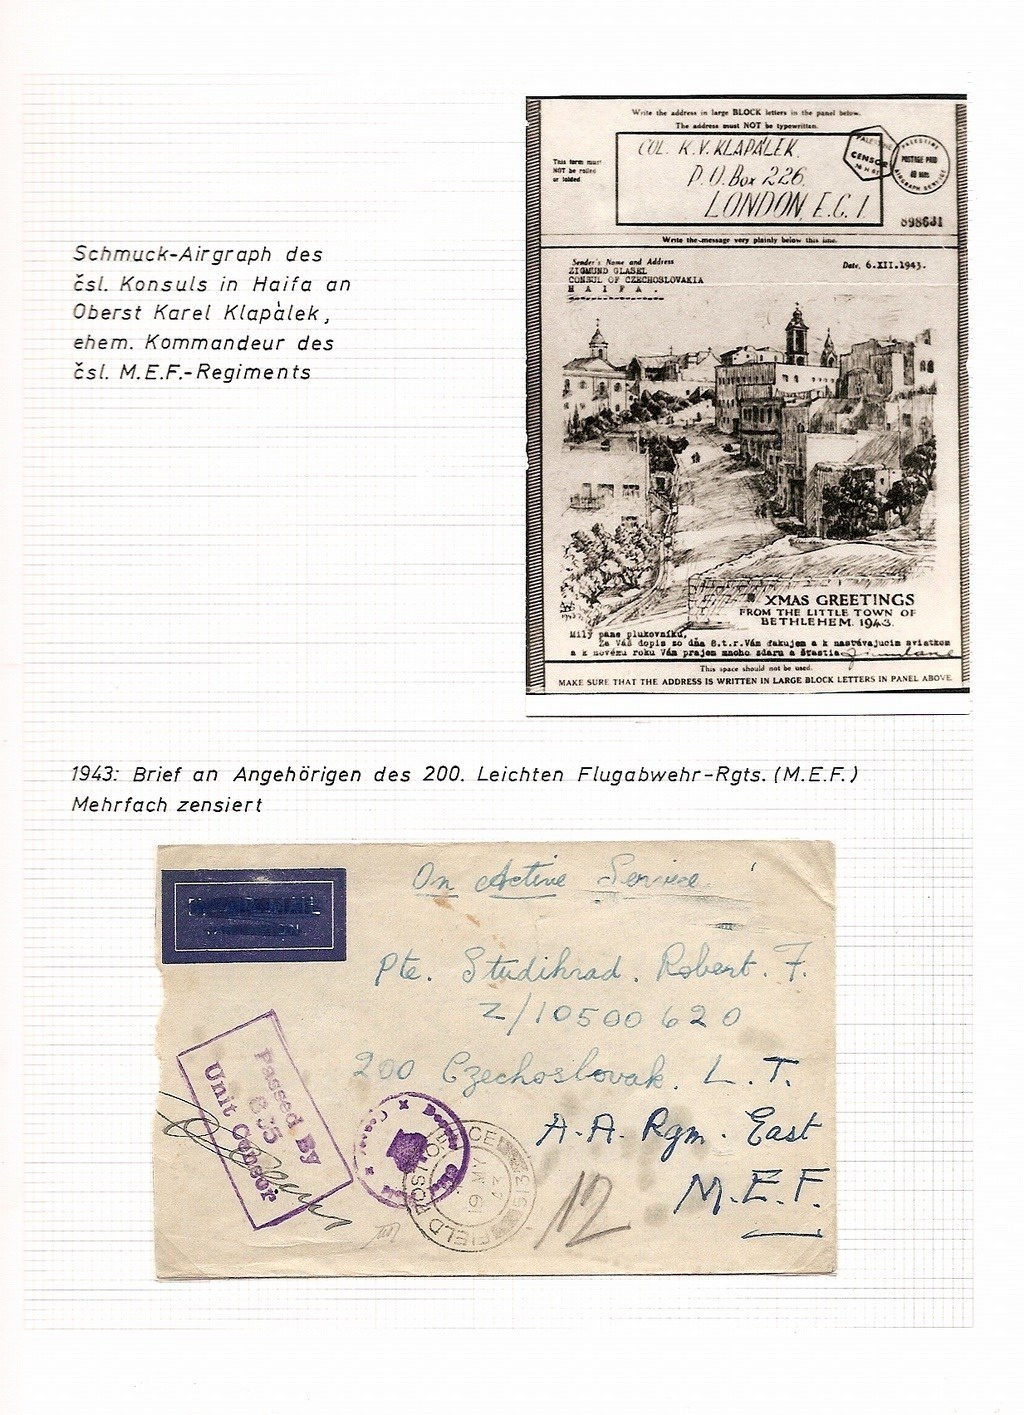 Schmuck-Airgraph des
čsl. Konsuls in Haifa an
Oberst Karel Klapàlek,
ehem. Kommandeur des
čsl. M.E.F.-Regiments
Write the address in large BLOCK letters in the panel below.
The address must NOT be typewritten.
This form must
NOT be rolled
or folded
COL. K.V. KLAPÁLEK.
P.O. Box 226.
LONDON, E.C.1.
PALESTINE
CENSOR
PALESTINE
POSTAGE PAID
40 MILS
AIRGRAPH SERVICE
898631
Write the message very plainly below this line.
Sender's Name and Address
ZIGMUND GLASEL
CONSUL OF CZECHOSLOVAKIA
H A I F A .
Date. 6.XII.1943.
XMAS GREETINGS
FROM THE LITTLE TOWN OF
BETHLEHEM. 1943.
Milý pane plukovníku,
Za Váš dopis zo dňa 8.t.r. Vám ďakujem a k nastávajucim sviatkom
a k novému roku Vám prajem mnoho zdaru a šťastia
This space should not be used.
MAKE SURE THAT THE ADDRESS IS WRITTEN IN LARGE BLOCK LETTERS IN PANEL ABOVE
1943: Brief an Angehörigen des 200. Leichten Flugabwehr-Rgts. (M.E.F.)
Mehrfach zensiert
On Active Service
Pte. Studihrad. Robert. F.
Z/10500620
200 Czechoslovak. L. T.
A.A. Rgm. East
M.E.F.
Passed By
835
Unit Censor
FIELD POST OFFICE
19 MY
43
12